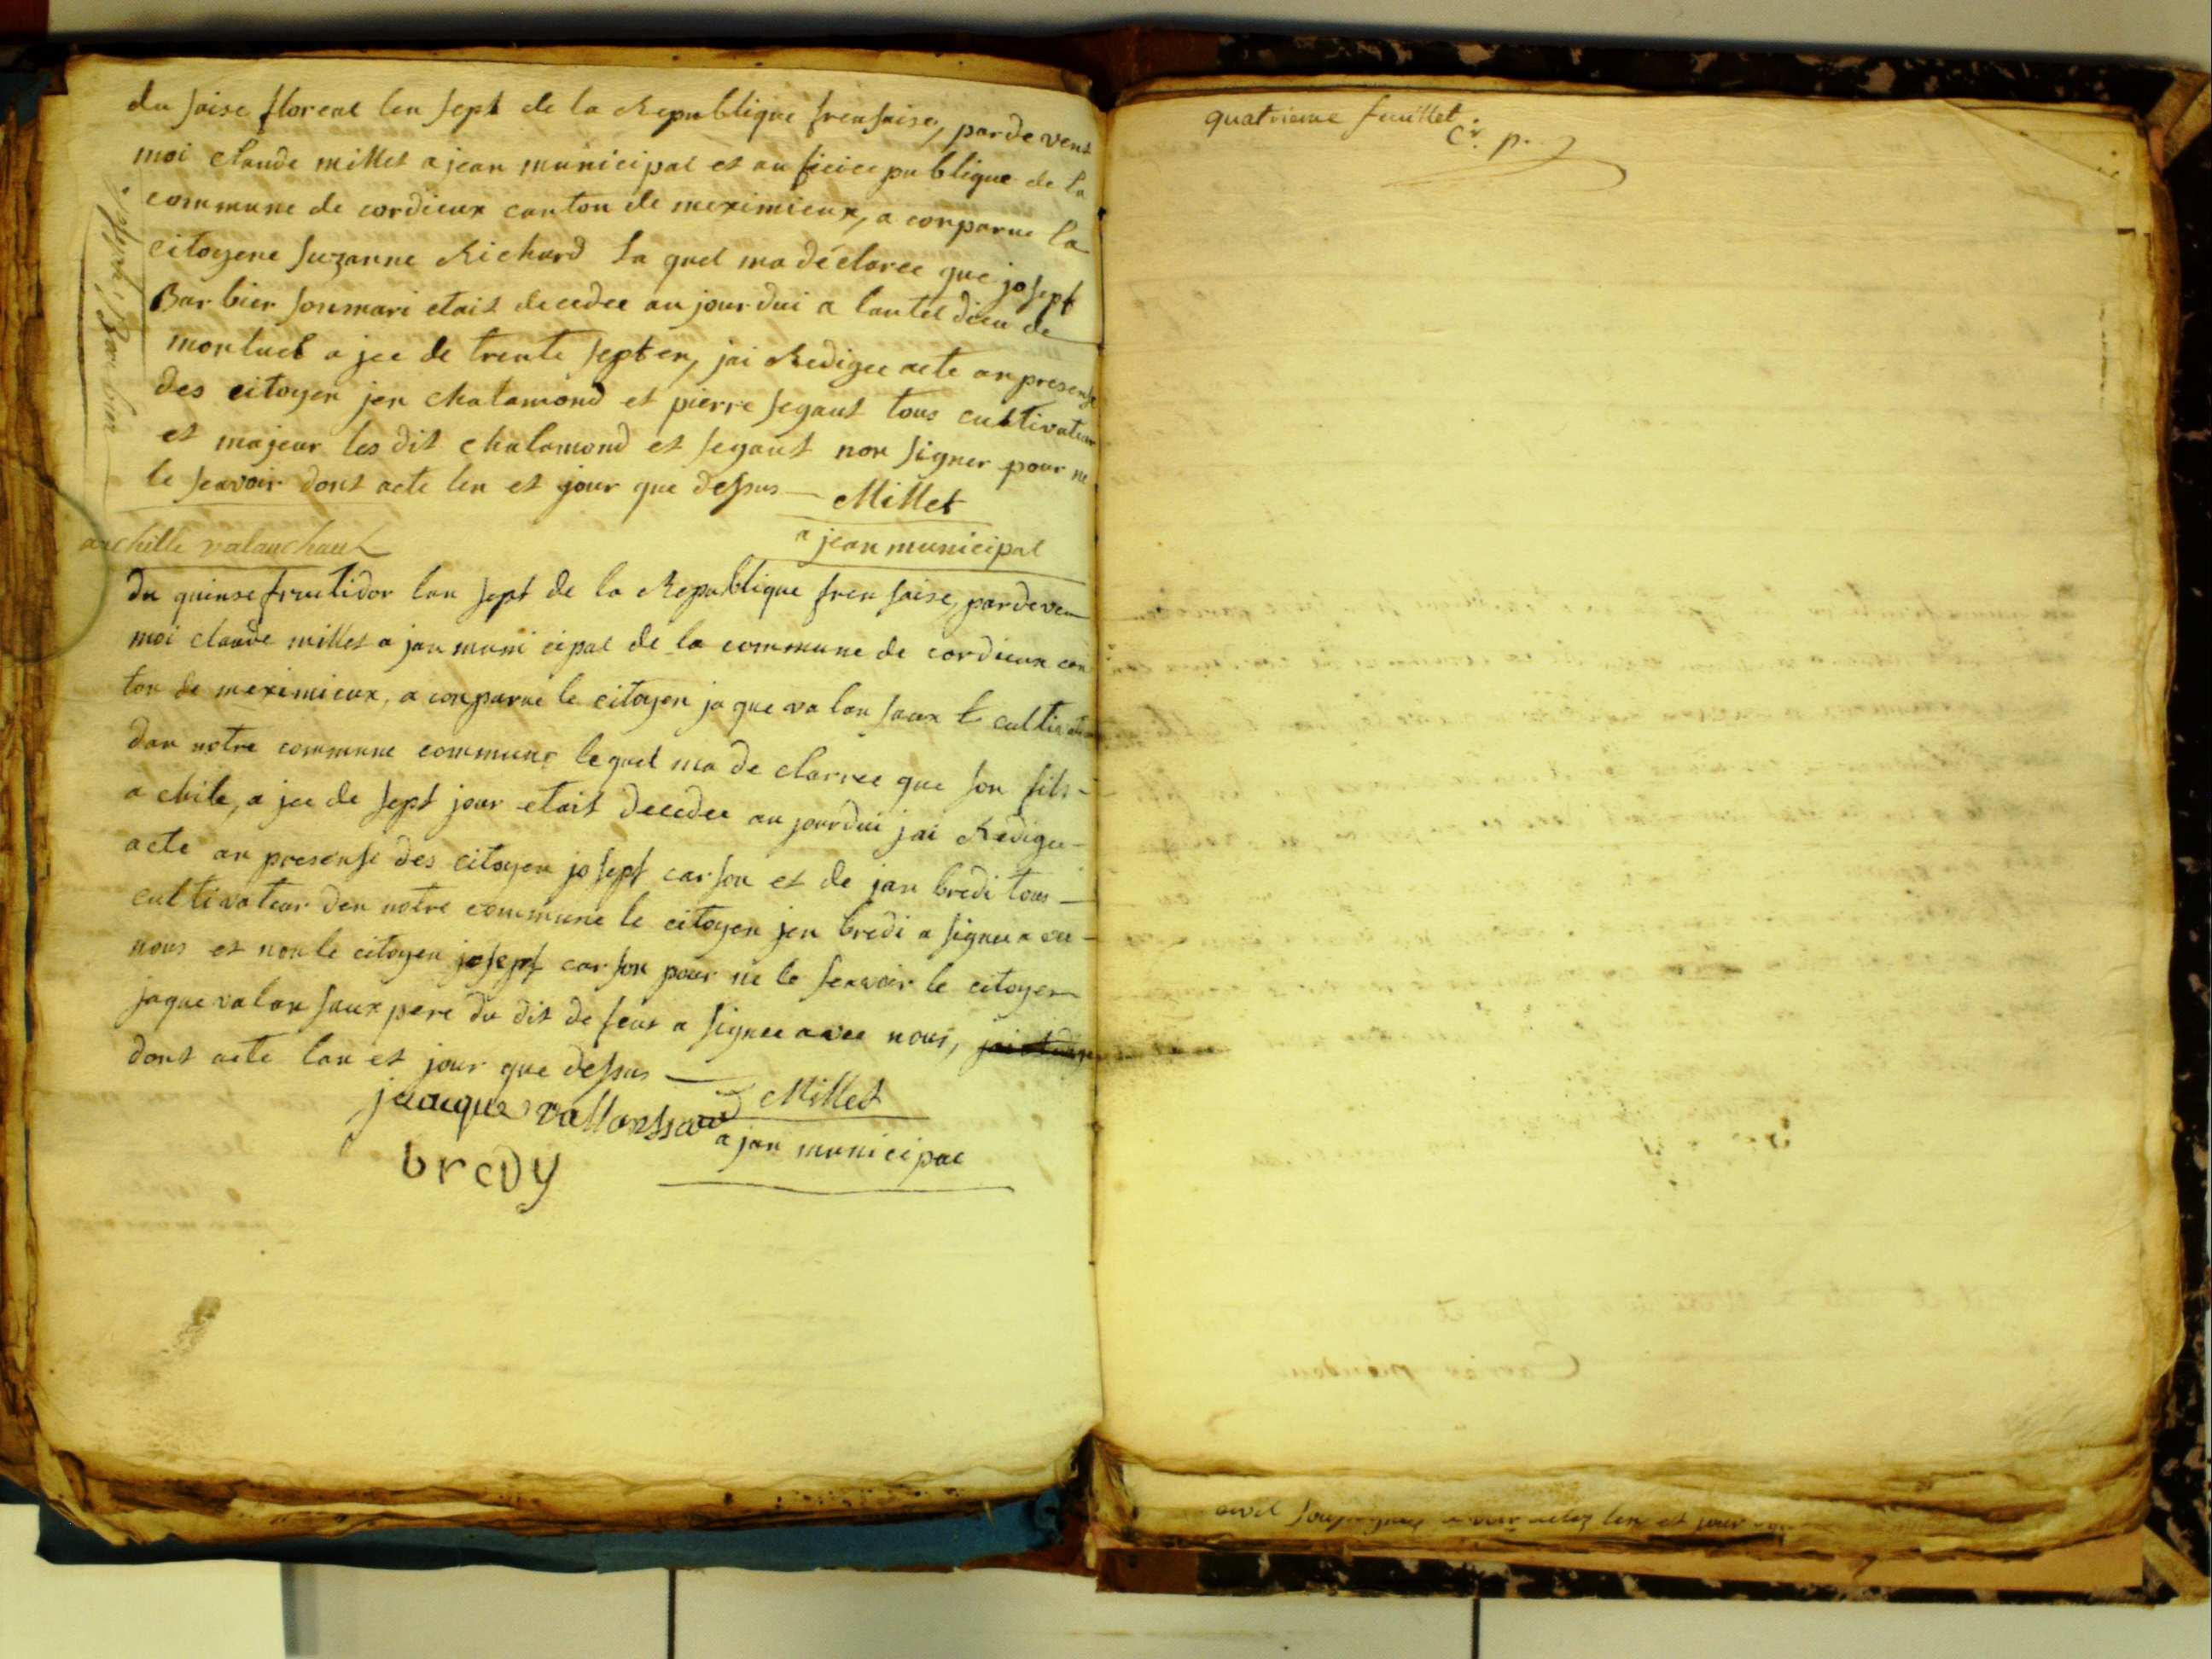 du saise floreal len sept de la Republique frensaise, pardevent
moi claude millet ajean municipal et auficiee publique de la
commune de cordieux canton de meximieux, a conparue la
citoyene suzanne Richard la quel ma déclaree que josept
Barbier sonmari etait decedee au jourdui a lautel dieu de
montuel a jee de trente septen, jai Redigee acte an presense
des citoyen jen chalamond et pierre segaut tous cultivateur
et majeur les dit chalamond et segaut non signer pour ne
le seavoir dont acte len et jour que dessus — Millet
a jean municipal
josept Barbier
auchille valanchaut
du quinse fruitidor lan sept de la Republique frensaise, pardeven
moi claude millet a jan municipal de la commune de cordieux can
ton de meximieux, a conparue le citoyen jaque valansaux cultivateur
dan notre commune commune lequel ma de clarree que son fils
a chile, a jee de sept jour etait decedee au jourdui jai Redigee
acte an presense des citoyen josept carson et de jan bredi tous
cultivateur den notre commune le citoyen jen bredi a signee a vu
nous et nonle citoyen josept carson pour ne le seavoir le citoyen
jaque valansaux pere du dit defeut a signee avec nous,
dont acte lan et jour que dessus — Millet
jeacque vallanssau
a jan municipal
bredy
quatrieme feuillet
cr. p.
len et jour